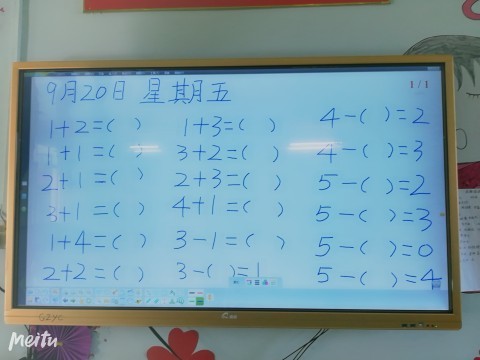 9月20日 星期五
1/1
1+2=( ) 1+3=( ) 4-( )=2
1+1=( ) 3+2=( ) 4-( )=3
2+1=( ) 2+3=( ) 5-( )=2
3+1=( ) 4+1=( ) 5-( )=3
1+4=( ) 3-1=( ) 5-( )=0
2+2=( ) 3-( )=1 5-( )=4
GZYC
Meitu